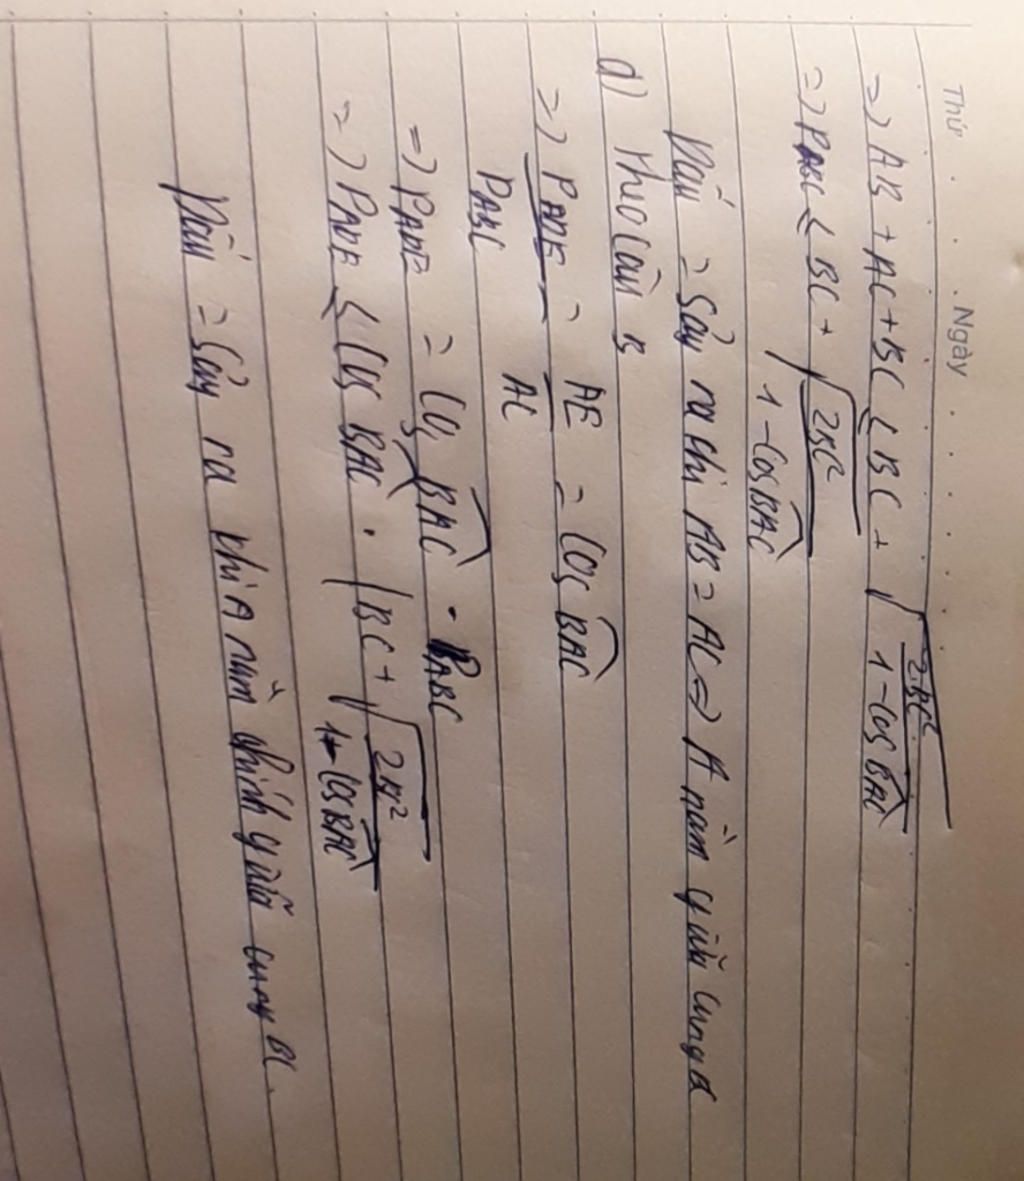 Thứ . . . Ngày . . . . . .
=> AB + AC + BC ≤ BC + √(2BC² / (1 - cos BAC))
=> P_ABC ≤ BC + √(2BC² / (1 - cos BAC))
Dấu = xảy ra khi AB = AC => A nằm giữa cung BC
d) Theo câu B
=> P_ADE / P_ABC = AE / AC = cos BAC
=> P_ADE = cos BAC . P_ABC
=> P_ADE ≤ cos BAC . (BC + √(2BC² / (1 - cos BAC))
Dấu = xảy ra khi A nằm chính giữa cung BC.